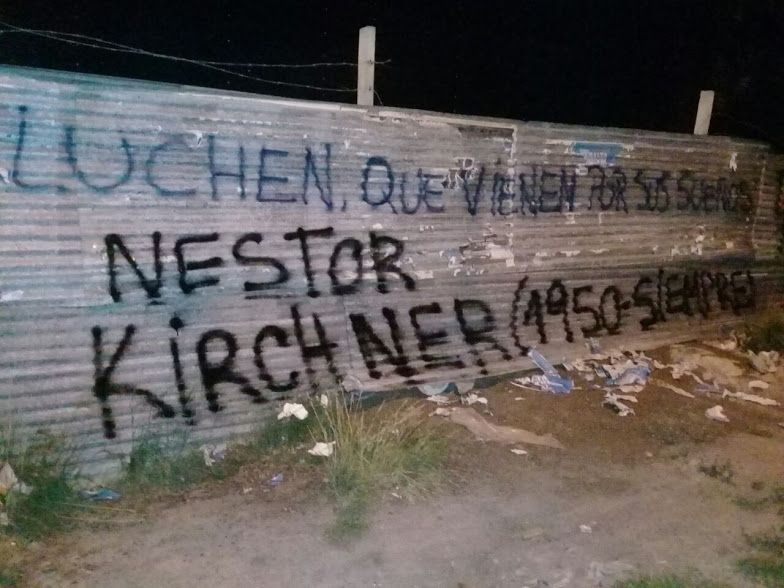 LUCHEN, QUE VIENEN POR SUS SUEÑOS
NESTOR
KIRCHNER (1950-SIEMPRE)